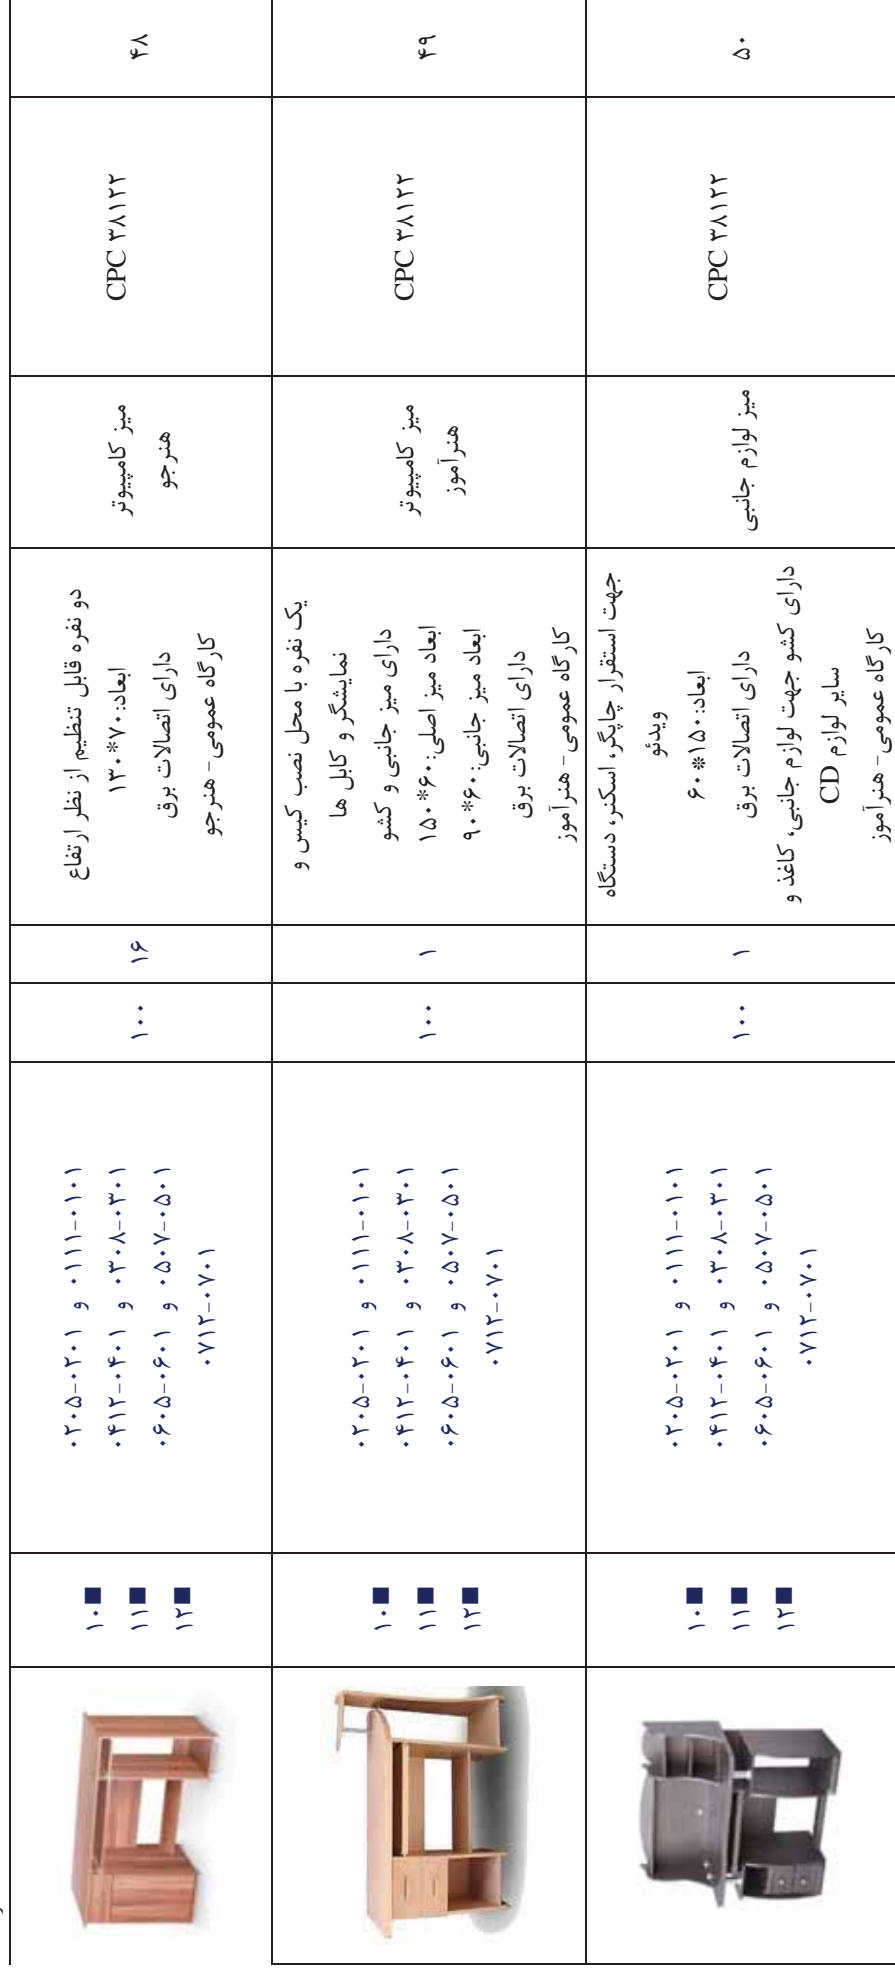 ۴۸
CPC ۳۸۱۲۲
میز کامپیوتر
هنرجو
دو نفره قابل تنظیم از نظر ارتفاع
ابعاد:۷۰*۱۳۰
دارای اتصالات برق
کارگاه عمومی- هنرجو
۱۶
۱۰۰
۰۱۰۱-۰۱۱۱ و ۰۲۰۱-۰۲۰۵
۰۳۰۱-۰۳۰۸ و ۰۴۰۱-۰۴۱۲
۰۵۰۱-۰۵۰۷ و ۰۶۰۱-۰۶۰۵
۰۷۰۱-۰۷۱۲
■۱۰
■۱۱
■۱۲
۴۹
CPC ۳۸۱۲۲
میز کامپیوتر
هنرآموز
یک نفره با محل نصب کیس و
نمایشگر و کابل ها
دارای میز جانبی و کشو
ابعاد میز اصلی:۶۰*۱۵۰
ابعاد میز جانبی:۶۰*۹۰
دارای اتصالات برق
کارگاه عمومی- هنرآموز
۱
۱۰۰
۰۱۰۱-۰۱۱۱ و ۰۲۰۱-۰۲۰۵
۰۳۰۱-۰۳۰۸ و ۰۴۰۱-۰۴۱۲
۰۵۰۱-۰۵۰۷ و ۰۶۰۱-۰۶۰۵
۰۷۰۱-۰۷۱۲
■۱۰
■۱۱
■۱۲
۵۰
CPC ۳۸۱۲۲
میز لوازم جانبی
جهت استقرار چاپگر، اسکنر، دستگاه
ویدئو
ابعاد:۱۵۰*۶۰
دارای اتصالات برق
دارای کشو جهت لوازم جانبی، کاغذ و
سایر لوازم CD
کارگاه عمومی- هنرآموز
۱
۱۰۰
۰۱۰۱-۰۱۱۱ و ۰۲۰۱-۰۲۰۵
۰۳۰۱-۰۳۰۸ و ۰۴۰۱-۰۴۱۲
۰۵۰۱-۰۵۰۷ و ۰۶۰۱-۰۶۰۵
۰۷۰۱-۰۷۱۲
■۱۰
■۱۱
■۱۲